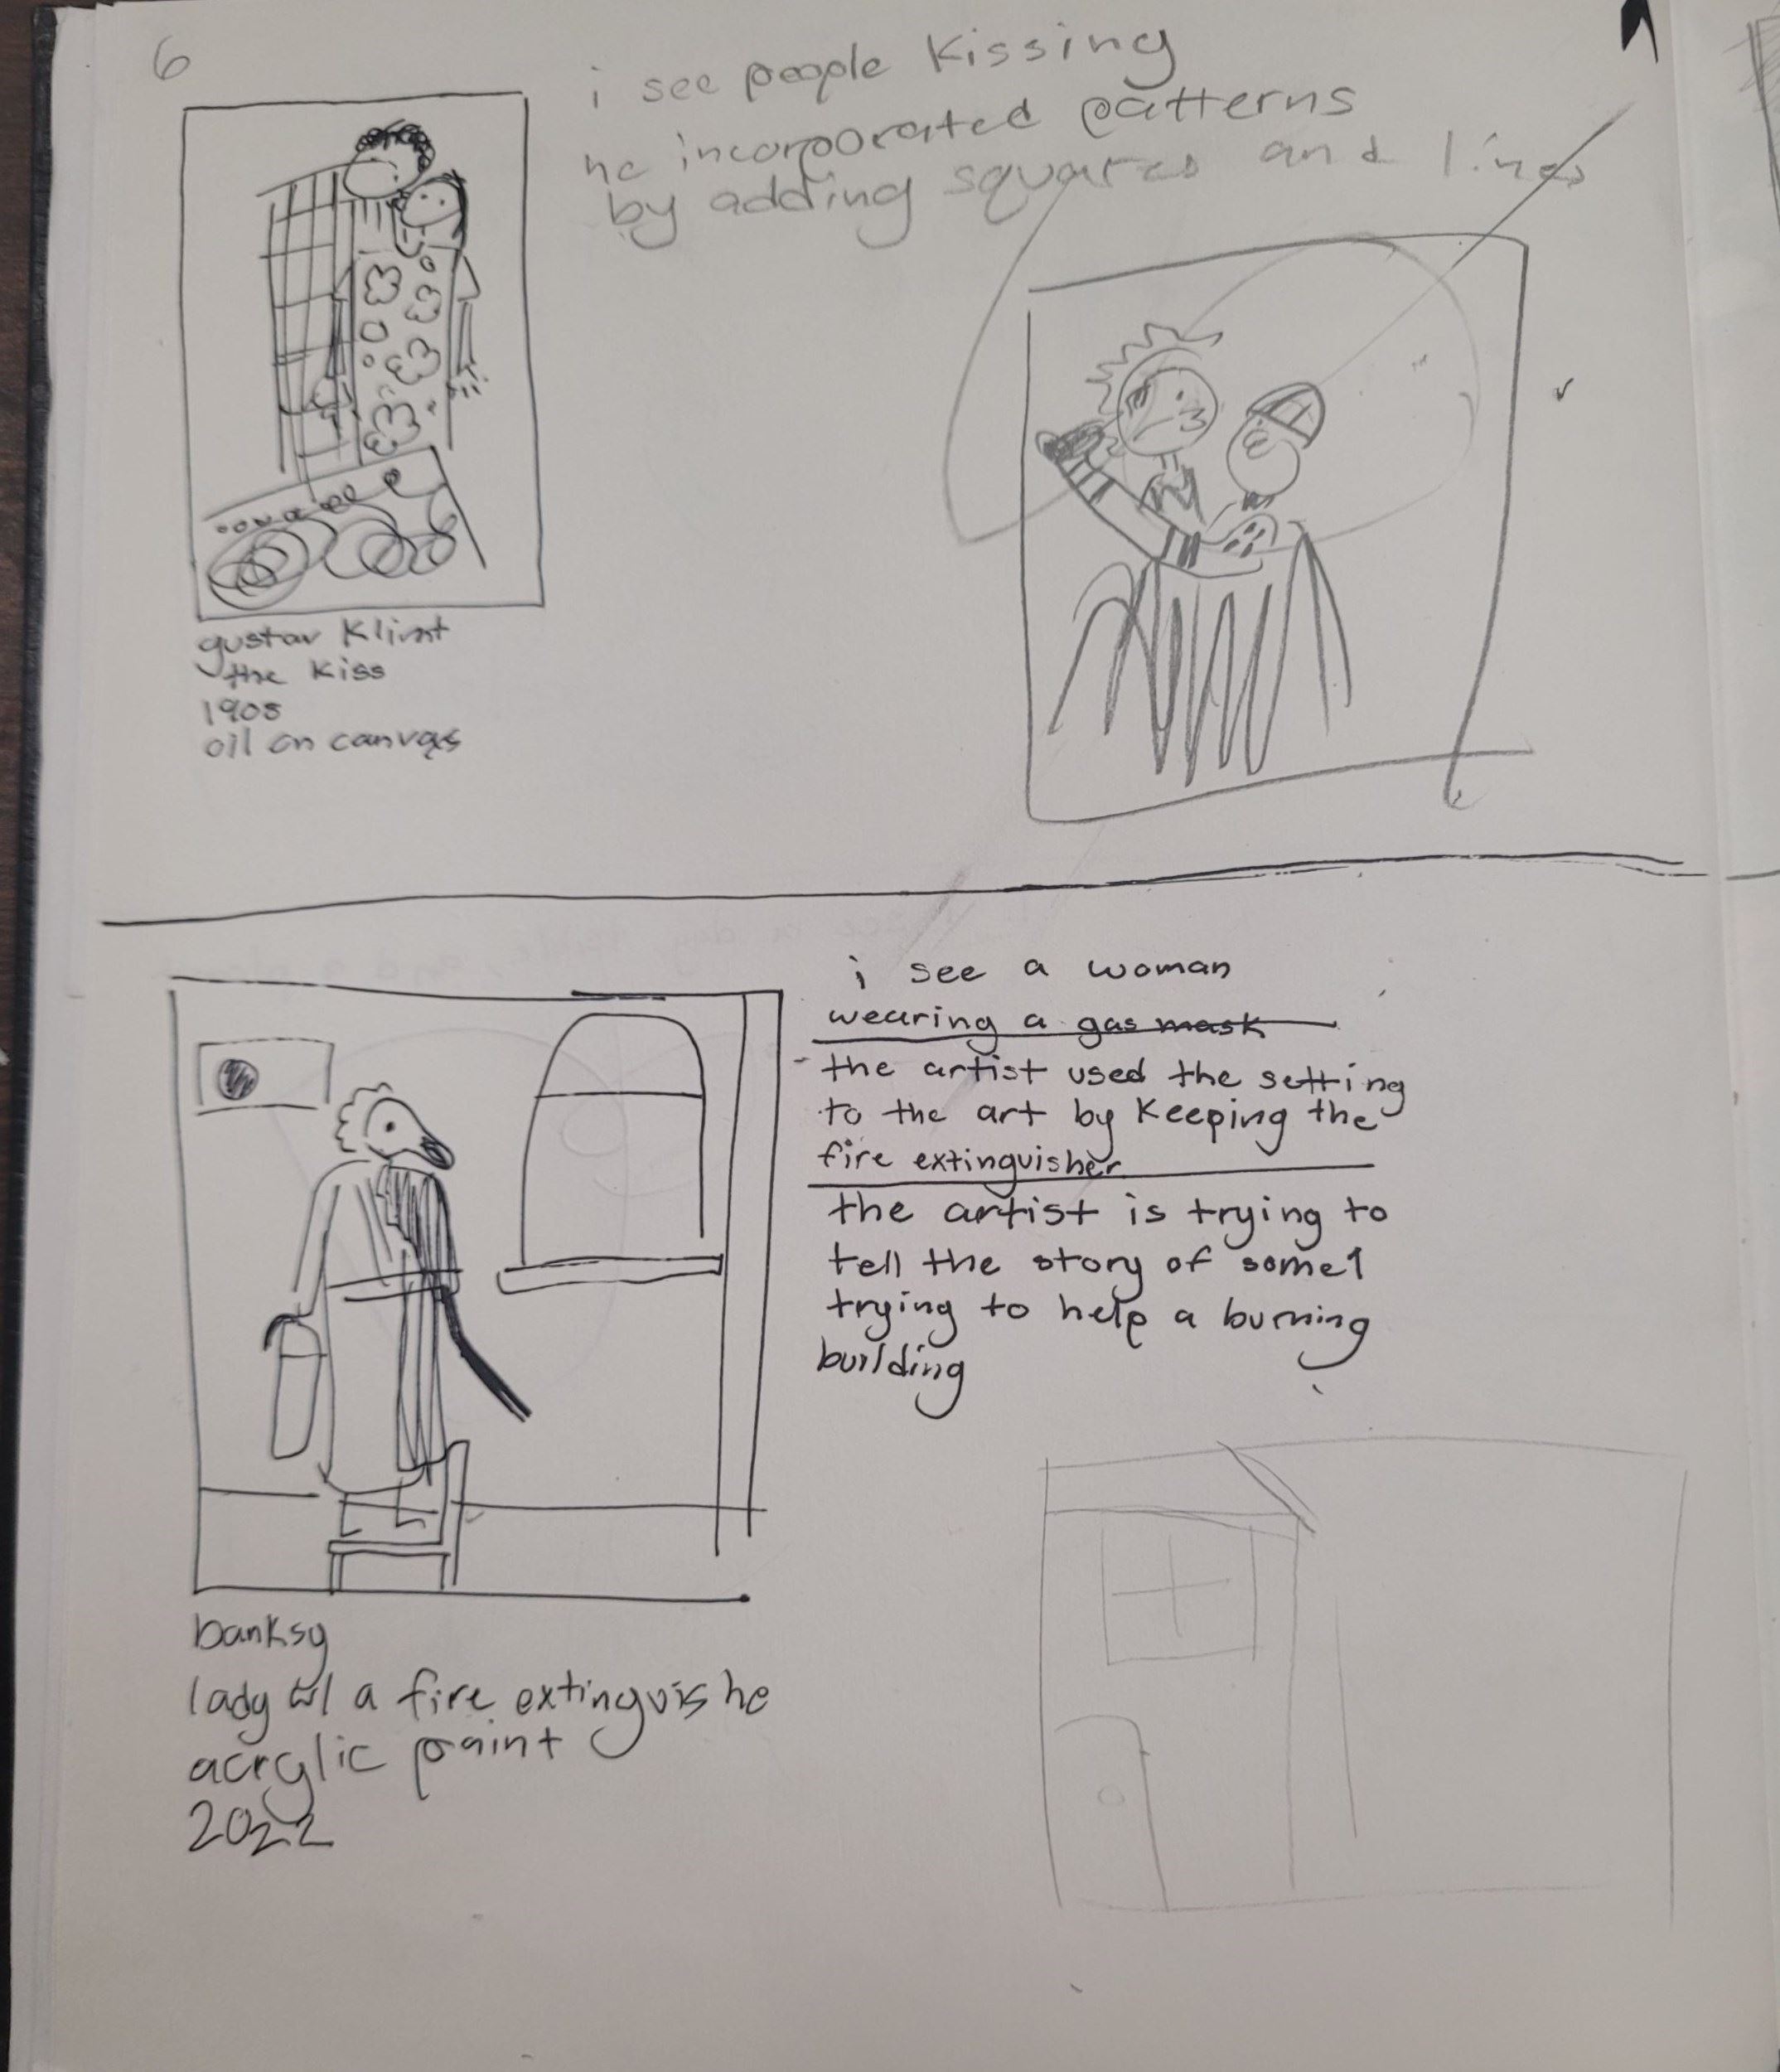 6
i see people Kissing
he incorporated patterns
by adding squares and lines
gustav Klimt
the Kiss
1908
oil on canvas
i see a woman
wearing a gas mask
the artist used the setting
to the art by Keeping the
fire extinguisher
the artist is trying to
tell the story of some1
trying to help a burning
building
banksy
lady w/ a fire extinguishe
acrylic paint
2022